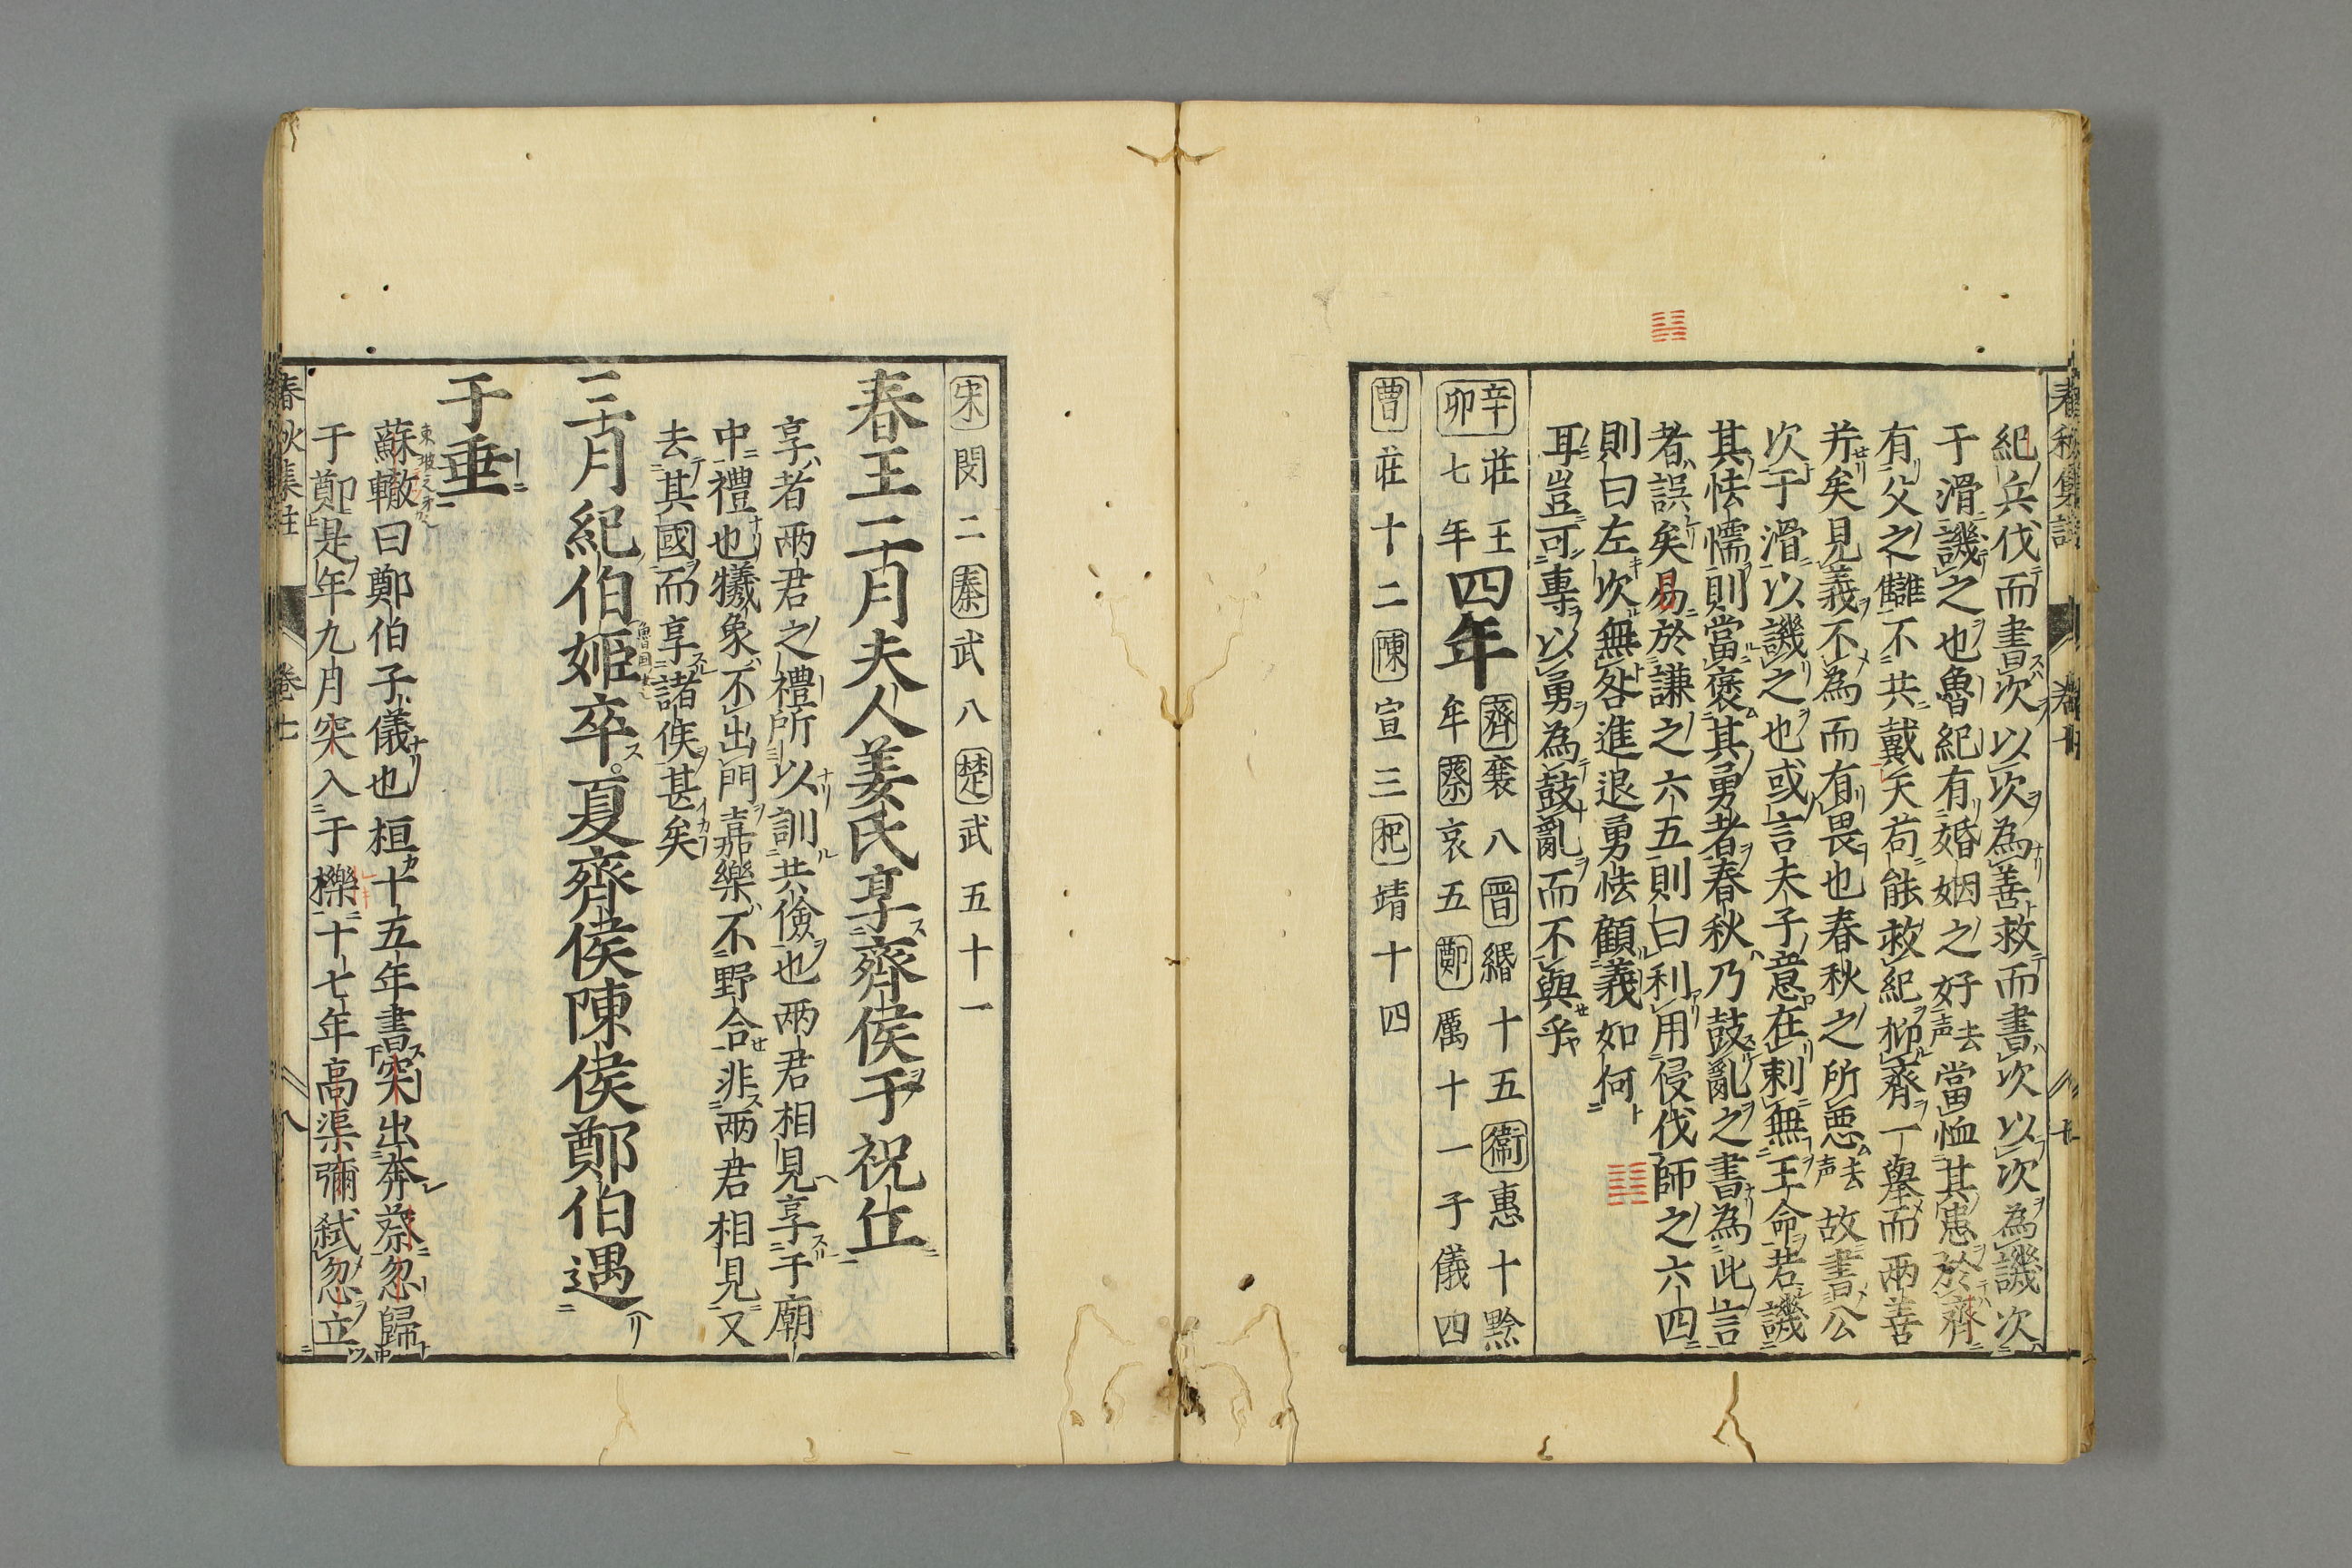 紀兵伐而書次以次為善救而書次以次為譏次
于滑譏之也魯紀有婚姻之好去声當恤其患於齊
有父之讎不共戴天苟能救紀抑齊一舉而兩善
并矣見義不為而有畏也春秋之所惡去声故書公
次于滑以譏之也或言夫子意在刺無王命若譏
其怯懦則當褒其勇者春秋乃鼓亂之書為此言
者誤矣易於謙之六五則曰利用侵伐師之六四
則曰左次無咎進退勇怯顧義如何
耳豈可專以勇為鼓亂而不與乎
辛卯 莊王七年 四年 齊襄八 晉緡十五 衞惠十黔牟 蔡哀五 鄭厲十一子儀四
曹莊十二 陳宣三 杞靖十四
宋閔二 秦武八 楚武五十一
春王二月夫人姜氏享齊侯于祝丘
享者兩君之禮所以訓共儉也兩君相見享于廟
中禮也犧象不出門嘉樂不野合非兩君相見又
去其國而享諸侯甚矣
三月紀伯姬卒夏齊侯陳侯鄭伯遇
于垂
蘇轍曰鄭伯子儀也桓十五年書突出奔蔡忽歸
于鄭是年九月突入于櫟十七年高渠彌弑忽立
春秋集註 卷七 八